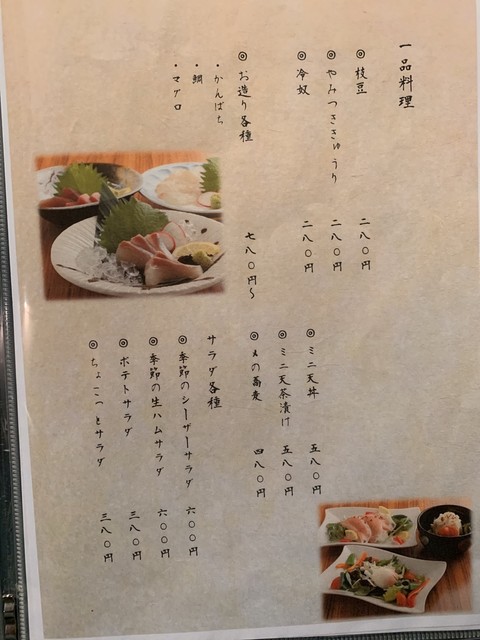 一品料理
◎枝豆 二八〇円
◎やみつききゅうり 二八〇円
◎冷奴 二八〇円
◎お造り各種 七八〇円～
・かんぱち
・鯛
・マグロ
◎ミニ天丼 五八〇円
◎ミニ天茶漬け 五八〇円
◎〆の蕎麦 四八〇円
サラダ各種
◎季節のシーザーサラダ 六〇〇円
◎季節の生ハムサラダ 六〇〇円
◎ポテトサラダ 三八〇円
◎ちょこっとサラダ 三八〇円